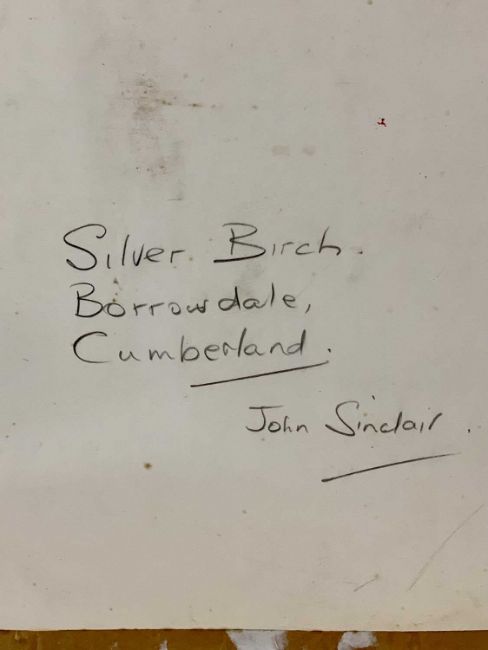 Silver Birch.
Borrowdale,
Cumberland.
John Sinclair.